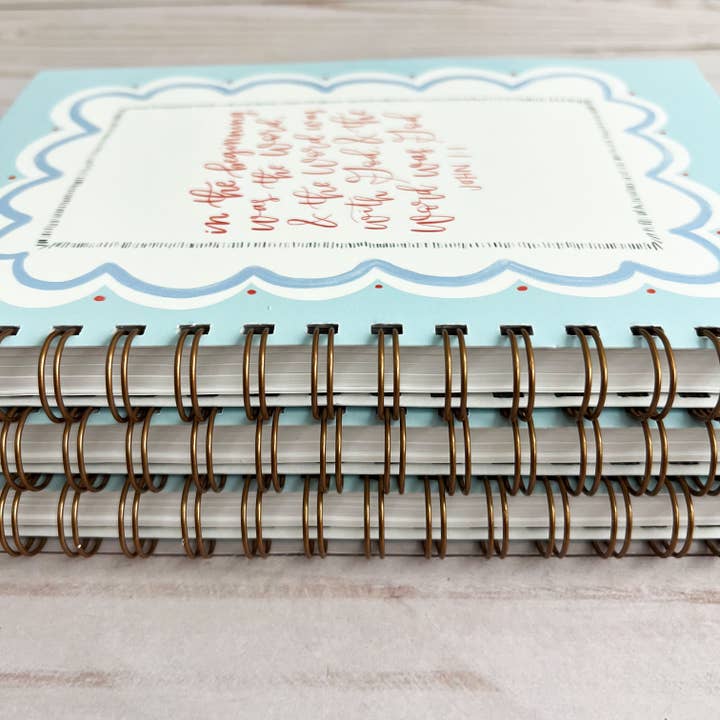 in the beginning
was the Word
& the Word was
with God & the
Word was God
JOHN 1:1